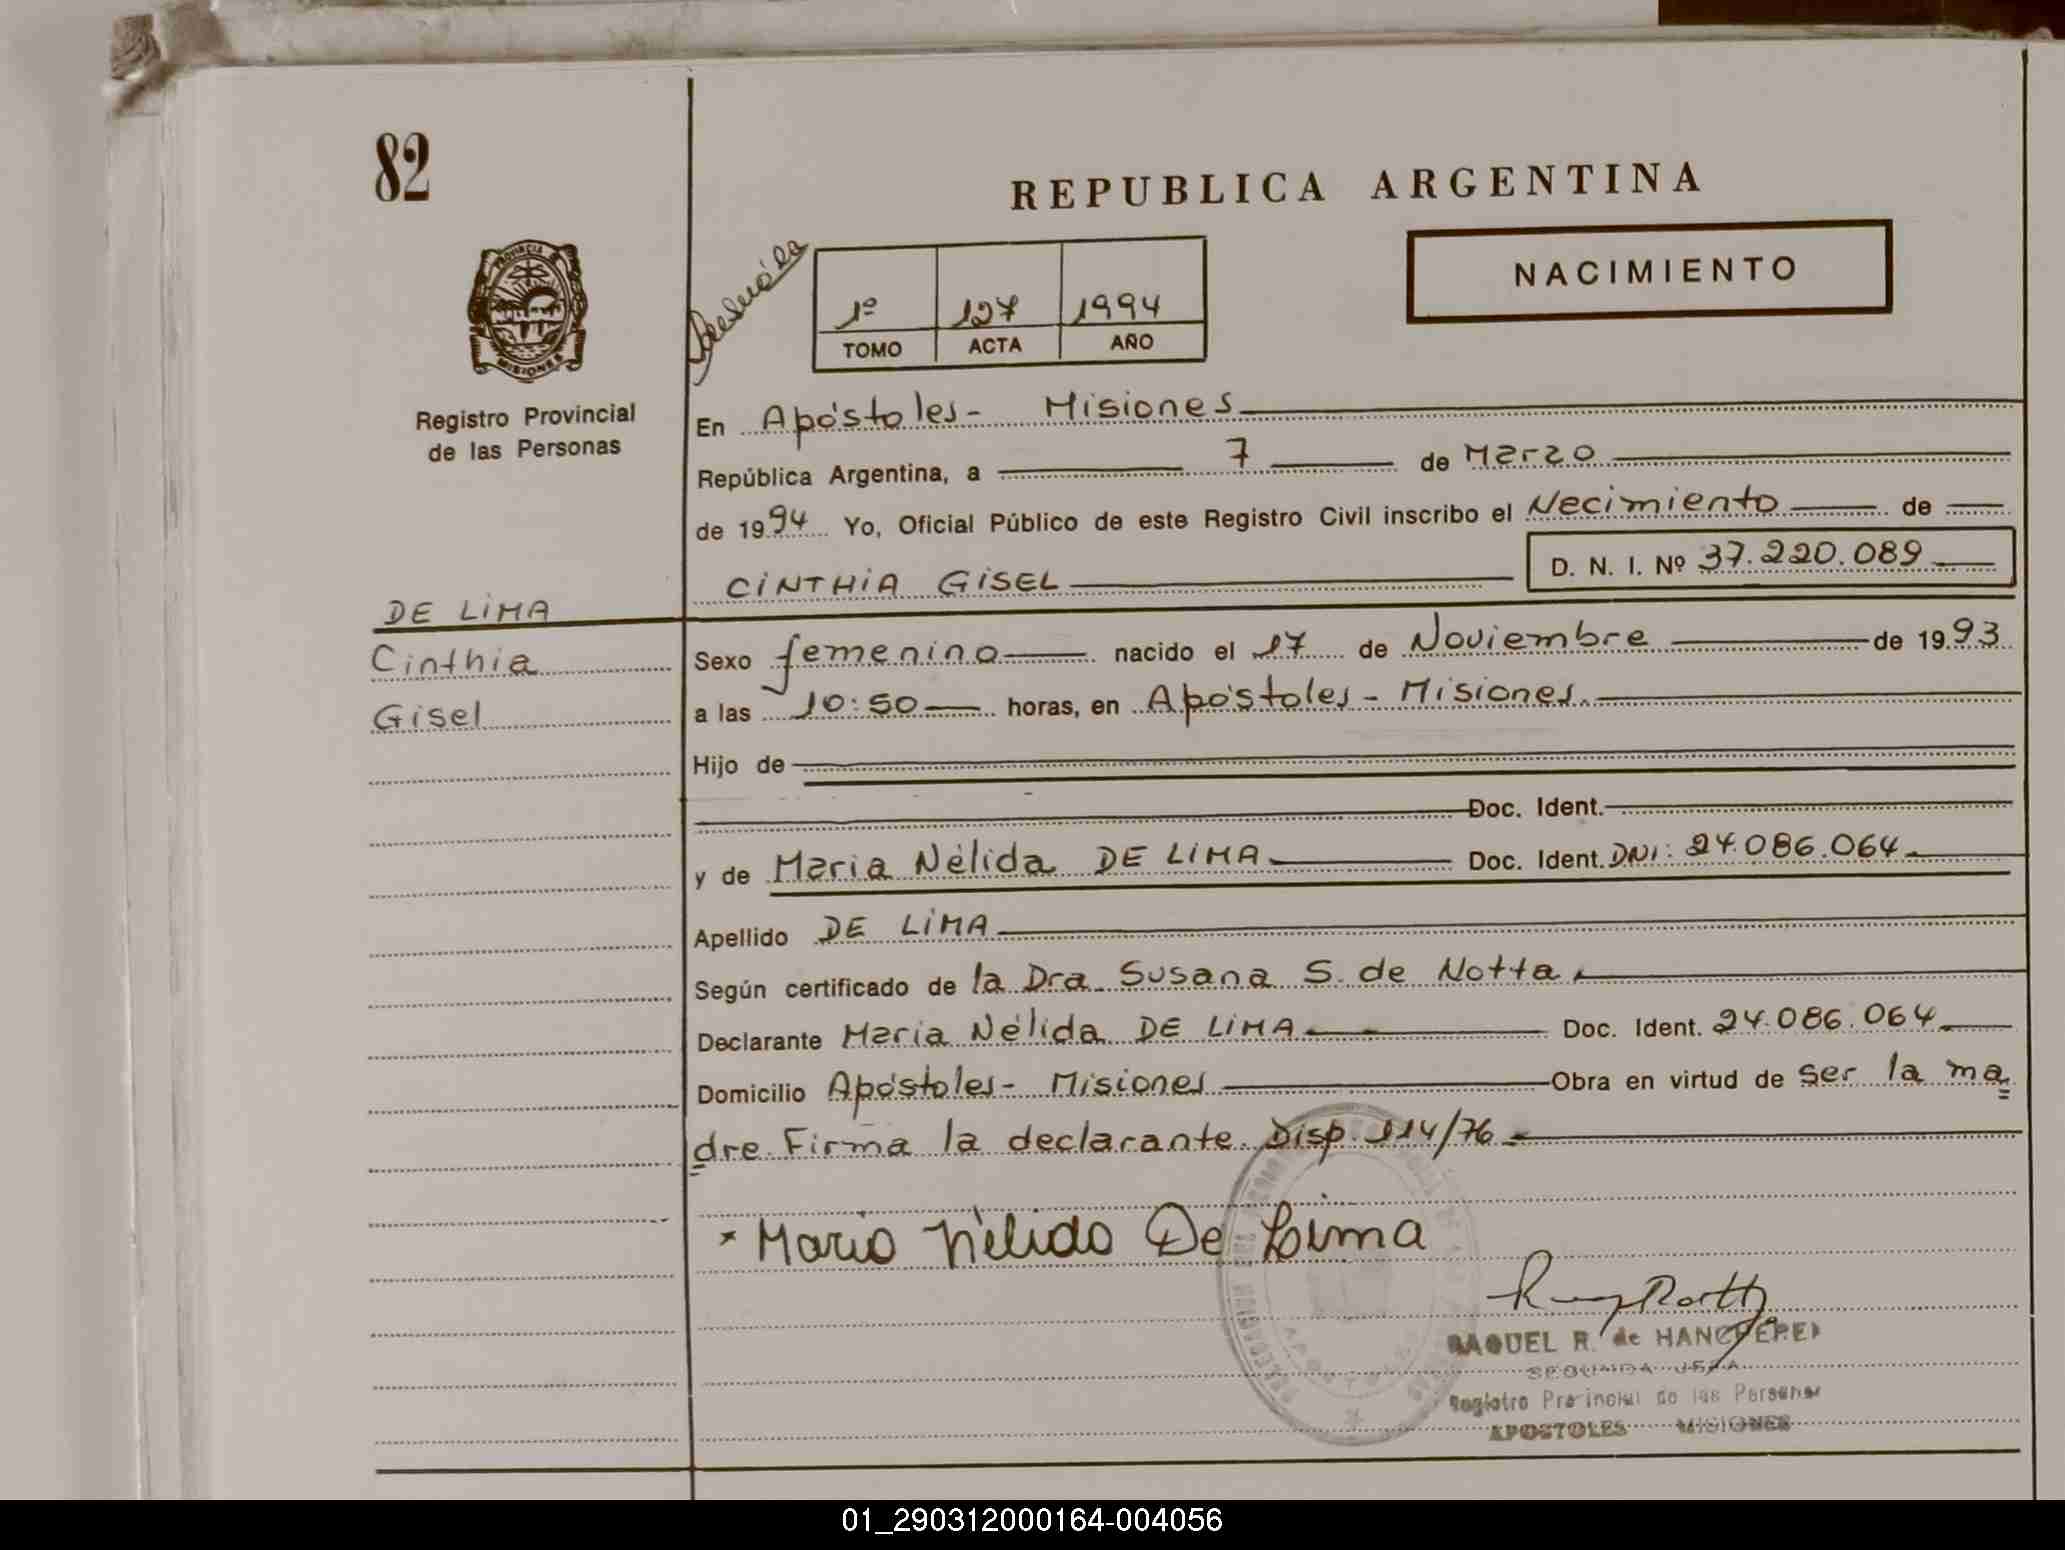 82
REPUBLICA ARGENTINA
NACIMIENTO
PROVINCIA DE
MISIONES
1º 127 1994
TOMO ACTA AÑO
Registro Provincial
de las Personas
En Apóstoles- Misiones
República Argentina, a 7 de Marzo
de 1994 Yo, Oficial Público de este Registro Civil inscribo el Necimiento de
CINTHIA GISEL D. N. I. Nº 37.220.089
DE LIMA
Cinthia
Gisel
Sexo femenino nacido el 17 de Noviembre de 1993
a las 10:50 horas, en Apóstoles- Misiones.
Hijo de
Doc. Ident.
y de Maria Nélida DE LIMA Doc. Ident. DNI: 24.086.064
Apellido DE LIMA
Según certificado de la Dra. Susana S. de Notta.
Declarante Maria Nélida DE LIMA Doc. Ident. 24.086.064
Domicilio Apóstoles- Misiones Obra en virtud de ser la ma
dre. Firma la declarante. Disp. 114/76
Maria Nélida De Lima
RAQUEL R. de
SEGUNDA JEFA
Registro Provincial de las Personas
APOSTOLES MISIONES
01_290312000164-004056